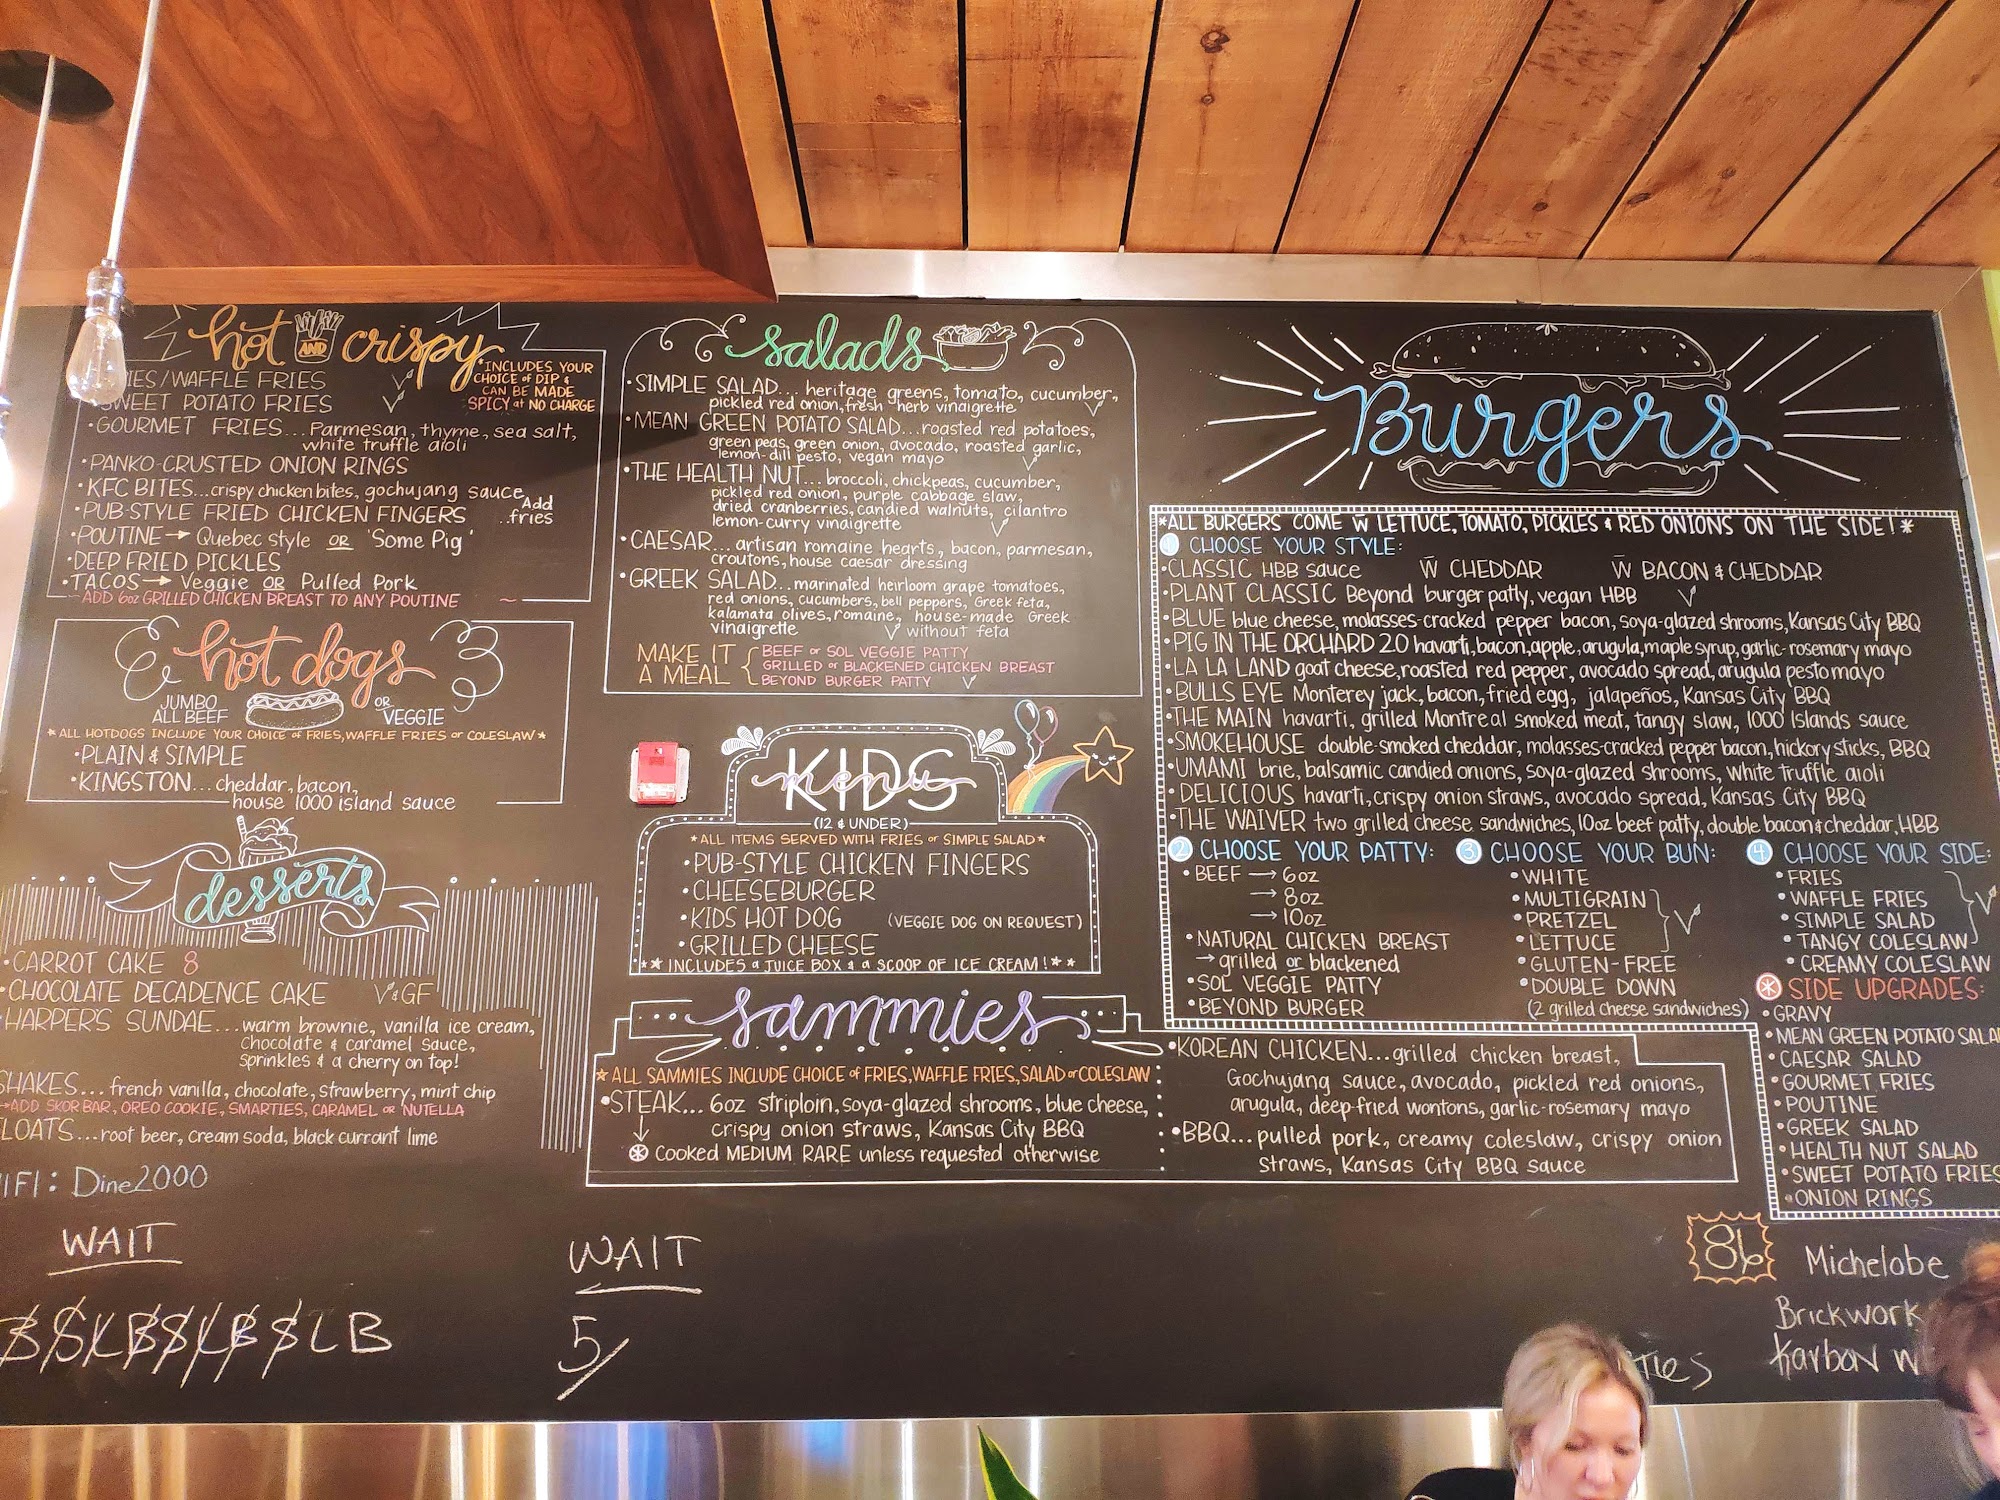 hot AND crispy
*INCLUDES YOUR
CHOICE of DIP &
CAN BE MADE
SPICY at NO CHARGE
/WAFFLE FRIES V
SWEET POTATO FRIES V
•GOURMET FRIES...Parmesan, thyme, sea salt,
white truffle aioli
•PANKO-CRUSTED ONION RINGS
•KFC BITES...crispy chicken bites, gochujang sauce
•PUB-STYLE FRIED CHICKEN FINGERS ...Add fries
•POUTINE→ Quebec style OR 'Some Pig'
•DEEP FRIED PICKLES
•TACOS→ Veggie OR Pulled Pork
~ADD 6oz GRILLED CHICKEN BREAST TO ANY POUTINE ~
hot dogs
JUMBO
ALL BEEF
OR
VEGGIE
*ALL HOTDOGS INCLUDE YOUR CHOICE of FRIES, WAFFLE FRIES or COLESLAW*
•PLAIN & SIMPLE
•KINGSTON...cheddar, bacon,
house 1000 island sauce
desserts
•CARROT CAKE 8
•CHOCOLATE DECADENCE CAKE V&GF
HARPER'S SUNDAE...warm brownie, vanilla ice cream,
chocolate & caramel sauce,
sprinkles & a cherry on top!
SHAKES...french vanilla, chocolate, strawberry, mint chip
*ADD SKOR BAR, OREO COOKIE, SMARTIES, CARAMEL OR NUTELLA
LOATS...root beer, cream soda, black currant lime
IFI: Dine2000
WAIT
WAIT
5/
salads
•SIMPLE SALAD...heritage greens, tomato, cucumber,
pickled red onion, fresh herb vinaigrette V
•MEAN GREEN POTATO SALAD...roasted red potatoes,
green peas, green onion, avocado, roasted garlic,
lemon-dill pesto, vegan mayo V
•THE HEALTH NUT...broccoli, chickpeas, cucumber,
pickled red onion, purple cabbage slaw,
dried cranberries, candied walnuts, cilantro
lemon-curry vinaigrette V
•CAESAR...artisan romaine hearts, bacon, parmesan,
croutons, house caesar dressing
•GREEK SALAD...marinated heirloom grape tomatoes,
red onions, cucumbers, bell peppers, Greek feta,
kalamata olives, romaine, house-made Greek
vinaigrette V without feta
MAKE IT
A MEAL
BEEF or SOL VEGGIE PATTY
GRILLED or BLACKENED CHICKEN BREAST
BEYOND BURGER PATTY V
KIDS menu
(12 & UNDER)
*ALL ITEMS SERVED WITH FRIES or SIMPLE SALAD*
•PUB-STYLE CHICKEN FINGERS
•CHEESEBURGER
•KIDS HOT DOG (VEGGIE DOG ON REQUEST)
•GRILLED CHEESE
**INCLUDES a JUICE BOX & a SCOOP OF ICE CREAM!**
sammies
*ALL SAMMIES INCLUDE CHOICE of FRIES, WAFFLE FRIES, SALAD or COLESLAW
•STEAK...6oz striploin, soya-glazed shrooms, blue cheese,
crispy onion straws, Kansas City BBQ
* Cooked MEDIUM RARE unless requested otherwise
•KOREAN CHICKEN...grilled chicken breast,
Gochujang sauce, avocado, pickled red onions,
arugula, deep-fried wontons, garlic-rosemary mayo
•BBQ...pulled pork, creamy coleslaw, crispy onion
straws, Kansas City BBQ sauce
Burgers
*ALL BURGERS COME W̄ LETTUCE, TOMATO, PICKLES & RED ONIONS ON THE SIDE!*
1 CHOOSE YOUR STYLE:
•CLASSIC HBB sauce W̄ CHEDDAR W̄ BACON & CHEDDAR
•PLANT CLASSIC Beyond burger patty, vegan HBB V
•BLUE blue cheese, molasses-cracked pepper bacon, soya-glazed shrooms, Kansas City BBQ
•PIG IN THE ORCHARD 2.0 havarti, bacon, apple, arugula, maple syrup, garlic-rosemary mayo
•LA LA LAND goat cheese, roasted red pepper, avocado spread, arugula pesto mayo
•BULLS EYE Monterey jack, bacon, fried egg, jalapeños, Kansas City BBQ
•THE MAIN havarti, grilled Montreal smoked meat, tangy slaw, 1000 Islands sauce
•SMOKEHOUSE double-smoked cheddar, molasses-cracked pepper bacon, hickory sticks, BBQ
•UMAMI brie, balsamic candied onions, soya-glazed shrooms, white truffle aioli
•DELICIOUS havarti, crispy onion straws, avocado spread, Kansas City BBQ
•THE WAIVER two grilled cheese sandwiches, 10oz beef patty, double bacon & cheddar, HBB
2 CHOOSE YOUR PATTY:
•BEEF → 6oz
→ 8oz
→ 10oz
•NATURAL CHICKEN BREAST
→ grilled or blackened
•SOL VEGGIE PATTY
•BEYOND BURGER
3 CHOOSE YOUR BUN:
•WHITE
•MULTIGRAIN
•PRETZEL V
•LETTUCE
•GLUTEN-FREE
•DOUBLE DOWN
(2 grilled cheese sandwiches)
4 CHOOSE YOUR SIDE:
•FRIES
•WAFFLE FRIES V
•SIMPLE SALAD
•TANGY COLESLAW
•CREAMY COLESLAW
* SIDE UPGRADES:
•GRAVY
•MEAN GREEN POTATO
•CAESAR SALAD
•GOURMET FRIES
•POUTINE
•GREEK SALAD
•HEALTH NUT SALAD
•SWEET POTATO FRIES
•ONION RINGS
86
Michelobe
Brickwork
Karbon W